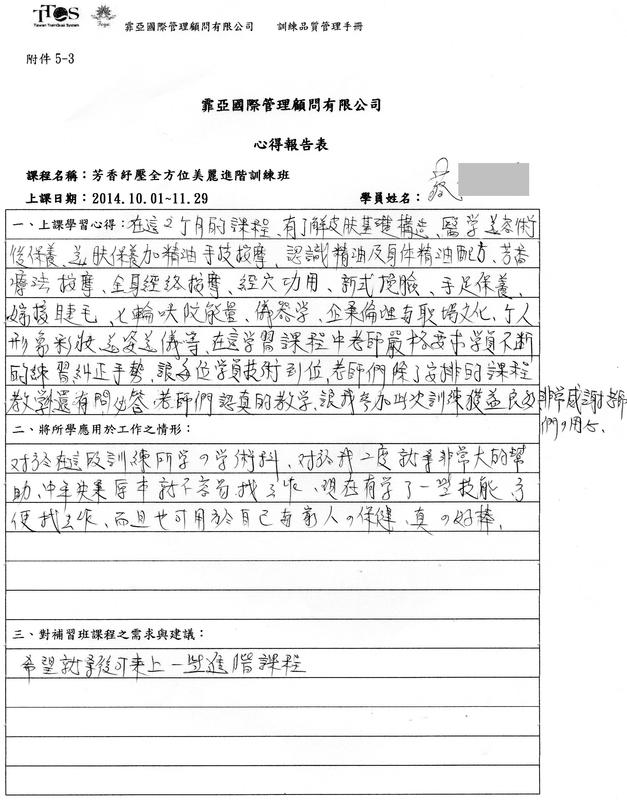 TTQS
Taiwan TrainQuali System
霏亞國際管理顧問有限公司 訓練品質管理手冊
附件 5-3
霏亞國際管理顧問有限公司
心得報告表
課程名稱：芳香紓壓全方位美麗進階訓練班
上課日期：2014.10.01~11.29 學員姓名：蔡
一、上課學習心得：在這2个月的課程、有了解皮肤基礎構造、醫学美容術
後保養、美肤保養加精油手技按摩、認識精油及身体精油配方、芳香
療法按摩、全身經絡按摩、經穴功用、新式挽臉、手足保養、
嫁接睫毛、七輪呎陀能量、儀器学、企業倫理与职場文化、个人
形象彩妝、美姿美儀等、在這学習課程中老師嚴格要求学員不断
的練習糾正手勢、讓每位学員技術到位、老師們除了安排的課程
教學還有問必答、老師們認真的教学、讓我參加此次訓練獲益良多 非常感謝老師
們の用心、
二、將所學應用於工作之情形：
对於在這段訓練所学の学術科、对於我二度就業非常大的幫
助、中年失業原本就不容易找工作、現在有学了一些技能、方
便找工作、而且也可用於自己与家人の保健、真の好棒、
三、對補習班課程之需求與建議：
希望就業後可來上一些進階課程